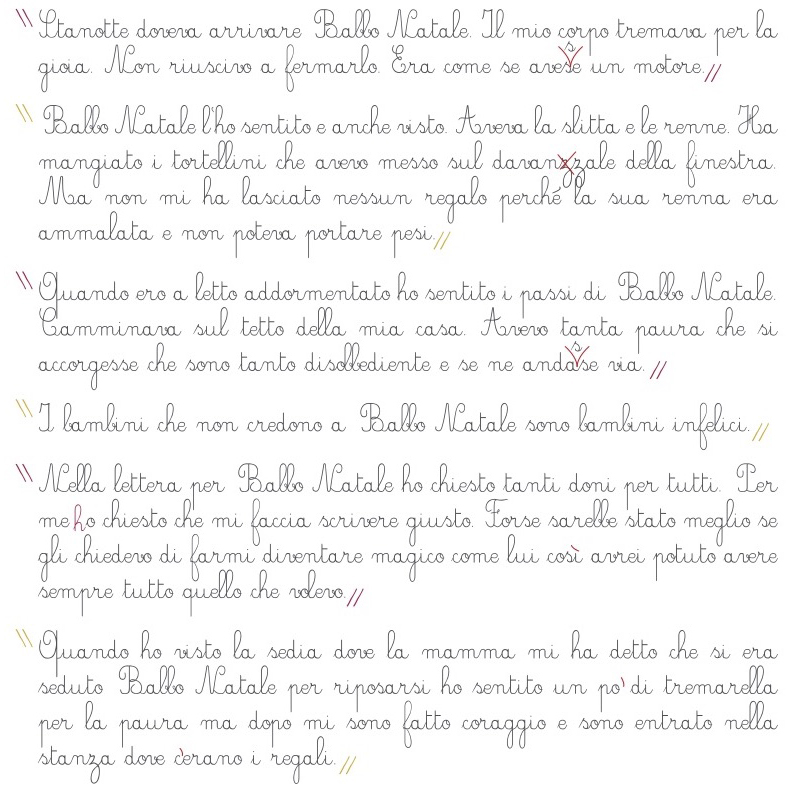 \\ Stanotte doveva arrivare Babbo Natale. Il mio corpo tremava per la
gioia. Non riuscivo a fermarlo. Era come se avesse un motore.//
\\ Babbo Natale l'ho sentito e anche visto. Aveva la slitta e le renne. Ha
mangiato i tortellini che avevo messo sul davanzale della finestra.
Ma non mi ha lasciato nessun regalo perché la sua renna era
ammalata e non poteva portare pesi.//
\\ Quando ero a letto addormentato ho sentito i passi di Babbo Natale.
Camminava sul tetto della mia casa. Avevo tanta paura che si
accorgesse che sono tanto disobbediente e se ne andasse via.//
\\ I bambini che non credono a Babbo Natale sono bambini infelici.//
\\ Nella lettera per Babbo Natale ho chiesto tanti doni per tutti. Per
me ho chiesto che mi faccia scrivere giusto. Forse sarebbe stato meglio se
gli chiedevo di farmi diventare magico come lui così avrei potuto avere
sempre tutto quello che volevo.//
\\ Quando ho visto la sedia dove la mamma mi ha detto che si era
seduto Babbo Natale per riposarsi ho sentito un po' di tremarella
per la paura ma dopo mi sono fatto coraggio e sono entrato nella
stanza dove c'erano i regali.//